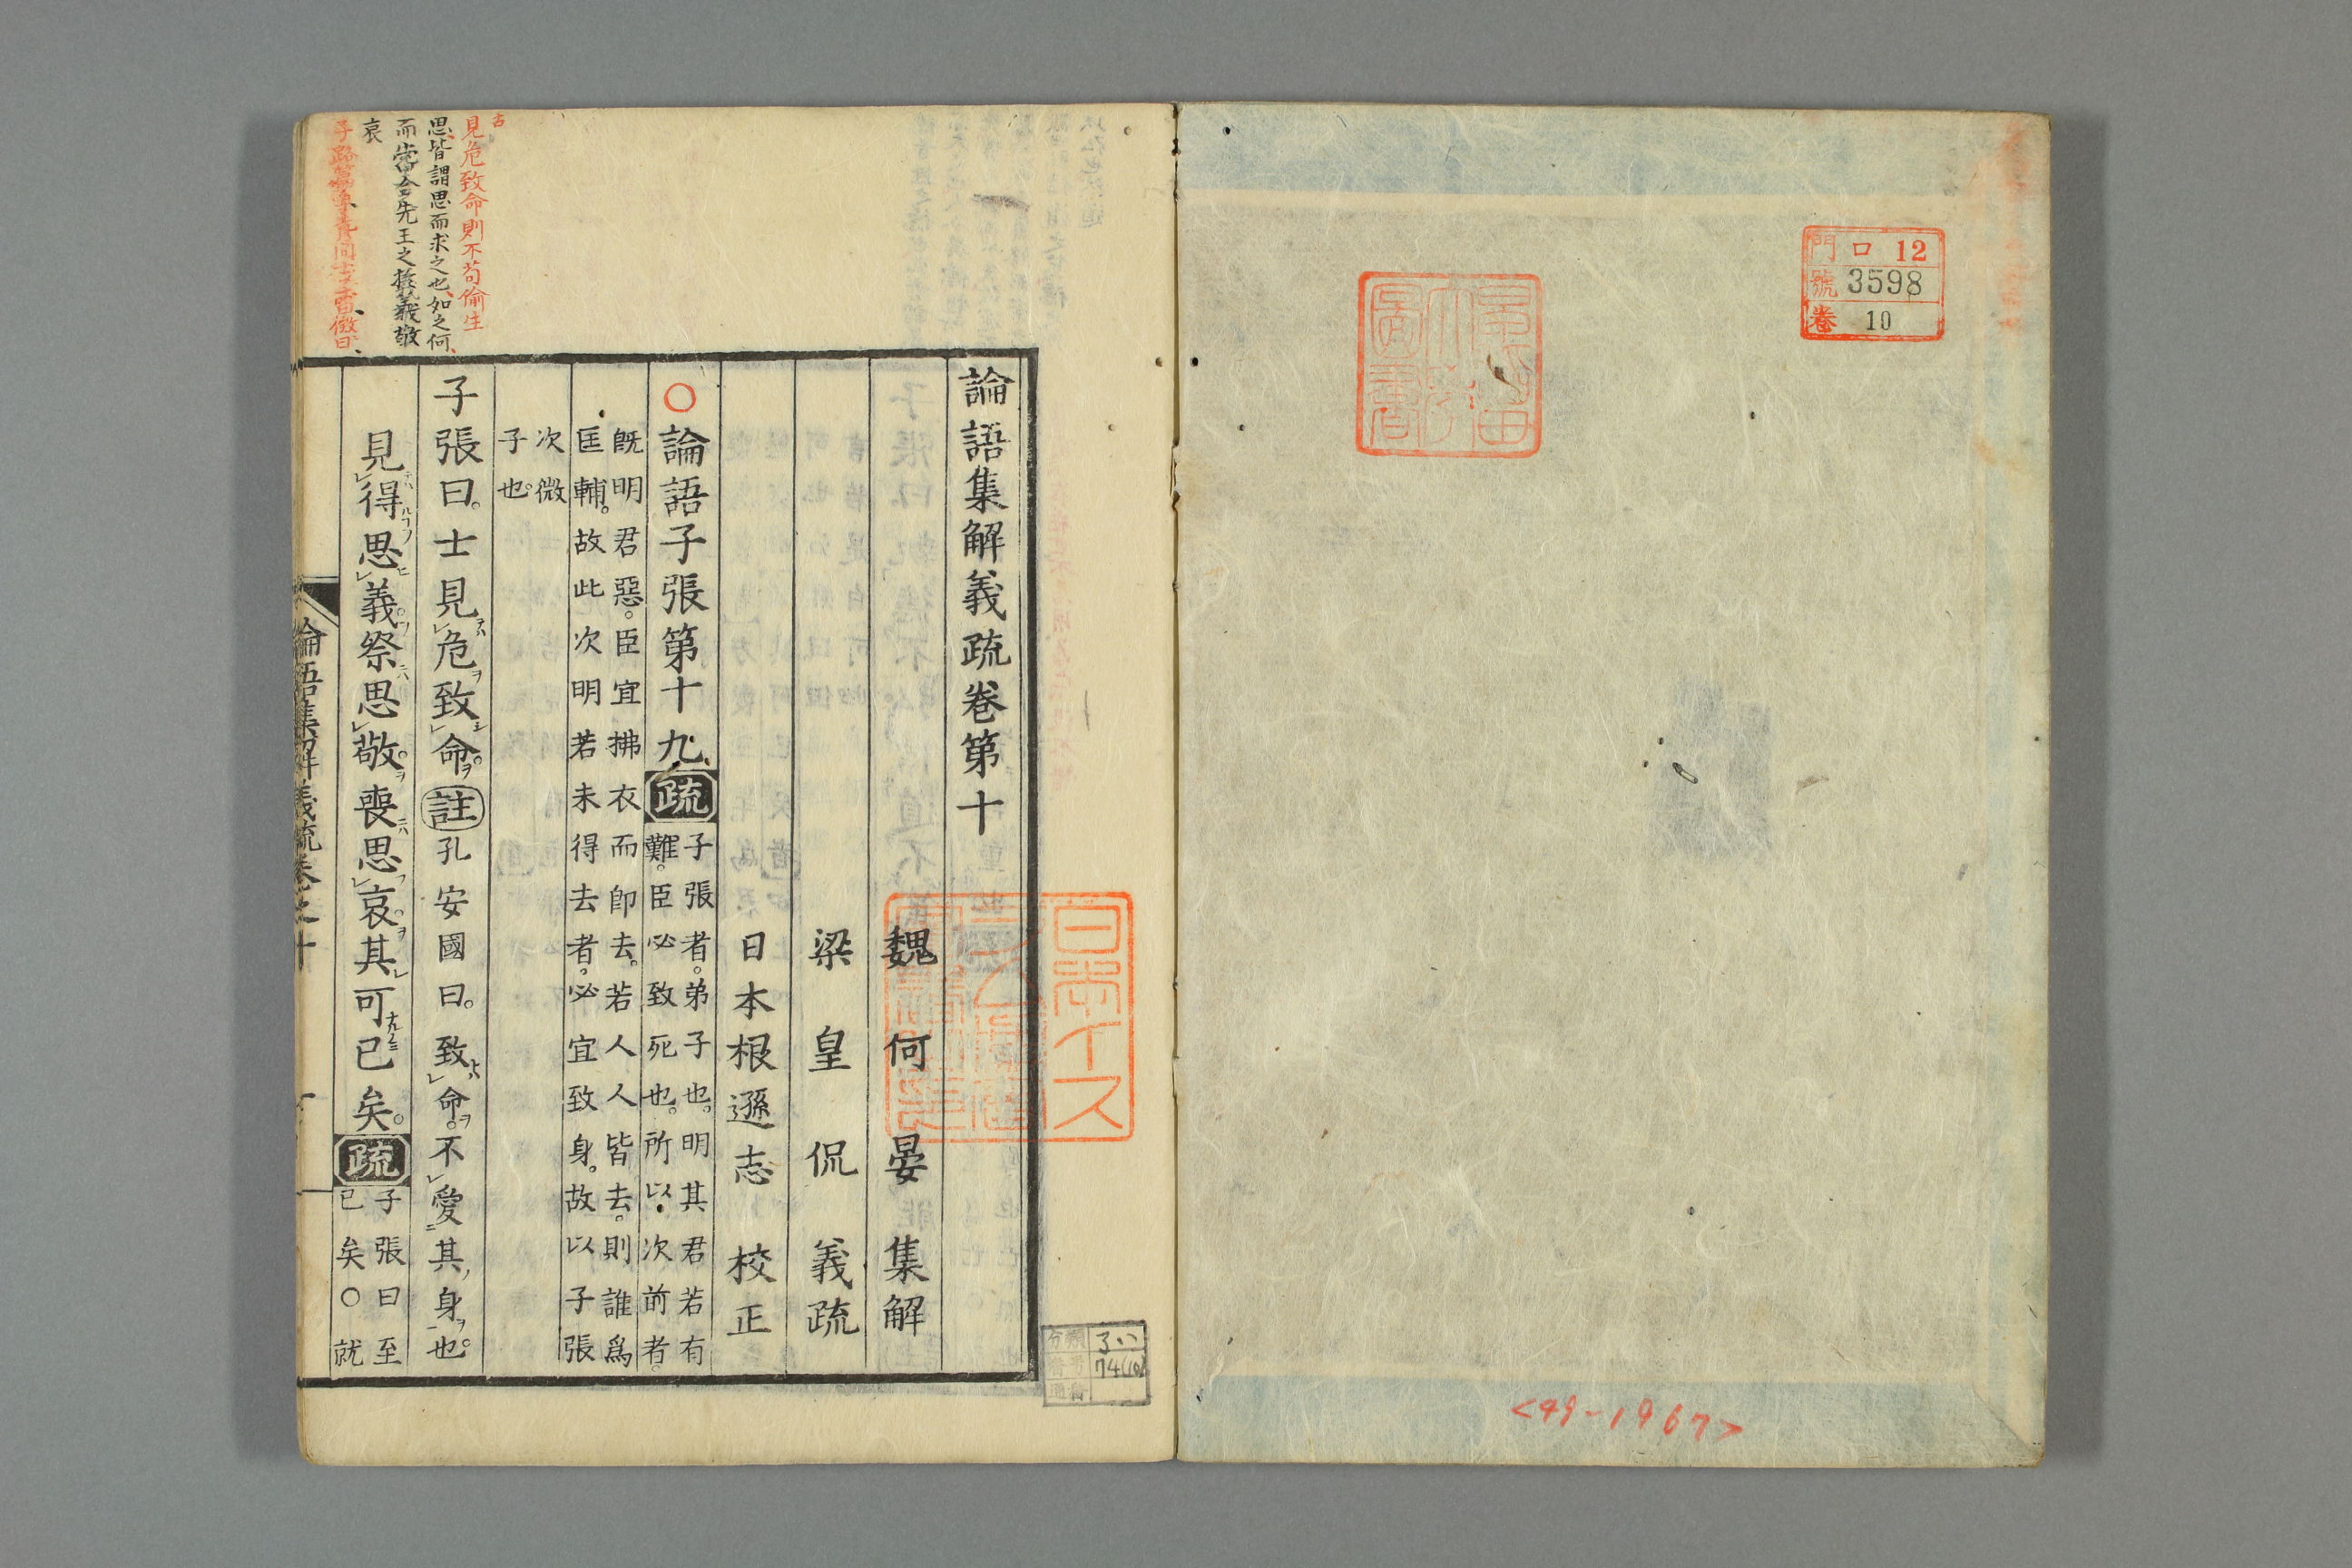 門 口 12
號 3598
卷 10
<49-1967>
論語集解義疏卷第十
魏何晏集解
梁皇侃義疏
日本根遜志校正
○論語子張第十九疏子張者。弟子也。明其君若有
難。臣必致死也。所以次前者。
既明君惡。臣宜拂衣而卽去。若人人皆去。則誰爲
匡輔。故此次明若未得去者。必宜致身。故以子張
次微
子也。
子張曰。士見危致命。註孔安國曰。致命。不愛其身也。
見得思義。祭思敬。喪思哀。其可已矣。疏子張曰至
已矣○就
論語集解義疏卷之十
古
見危致命則不苟偷生
思皆謂思而求之也如之何
而當合先王之義敬
哀
日本
74(10)